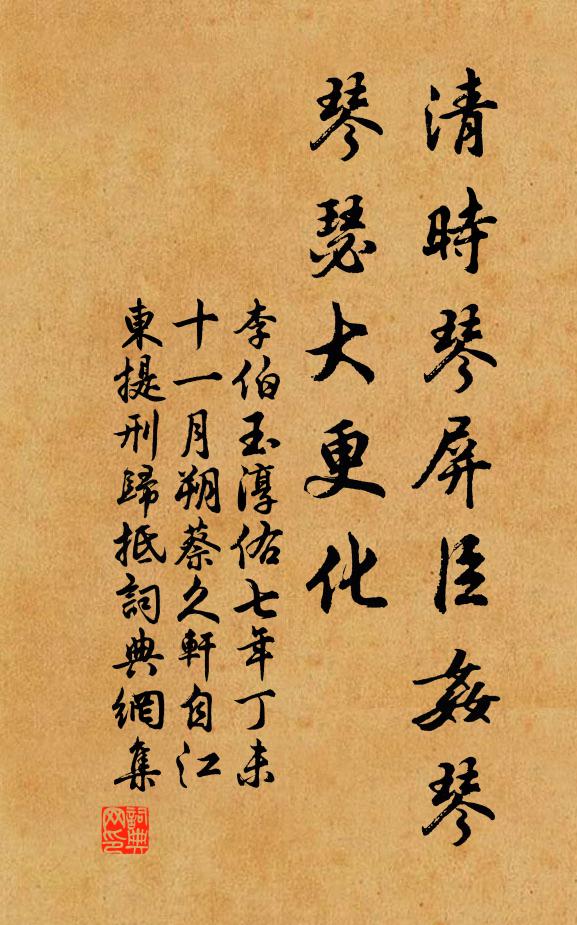 清時琴屏臣姦琴
琴瑟大更化
李伯玉淳佑七年丁未
十一月朔蔡久軒自江
東提刑歸抵詞典網集
詞典网印